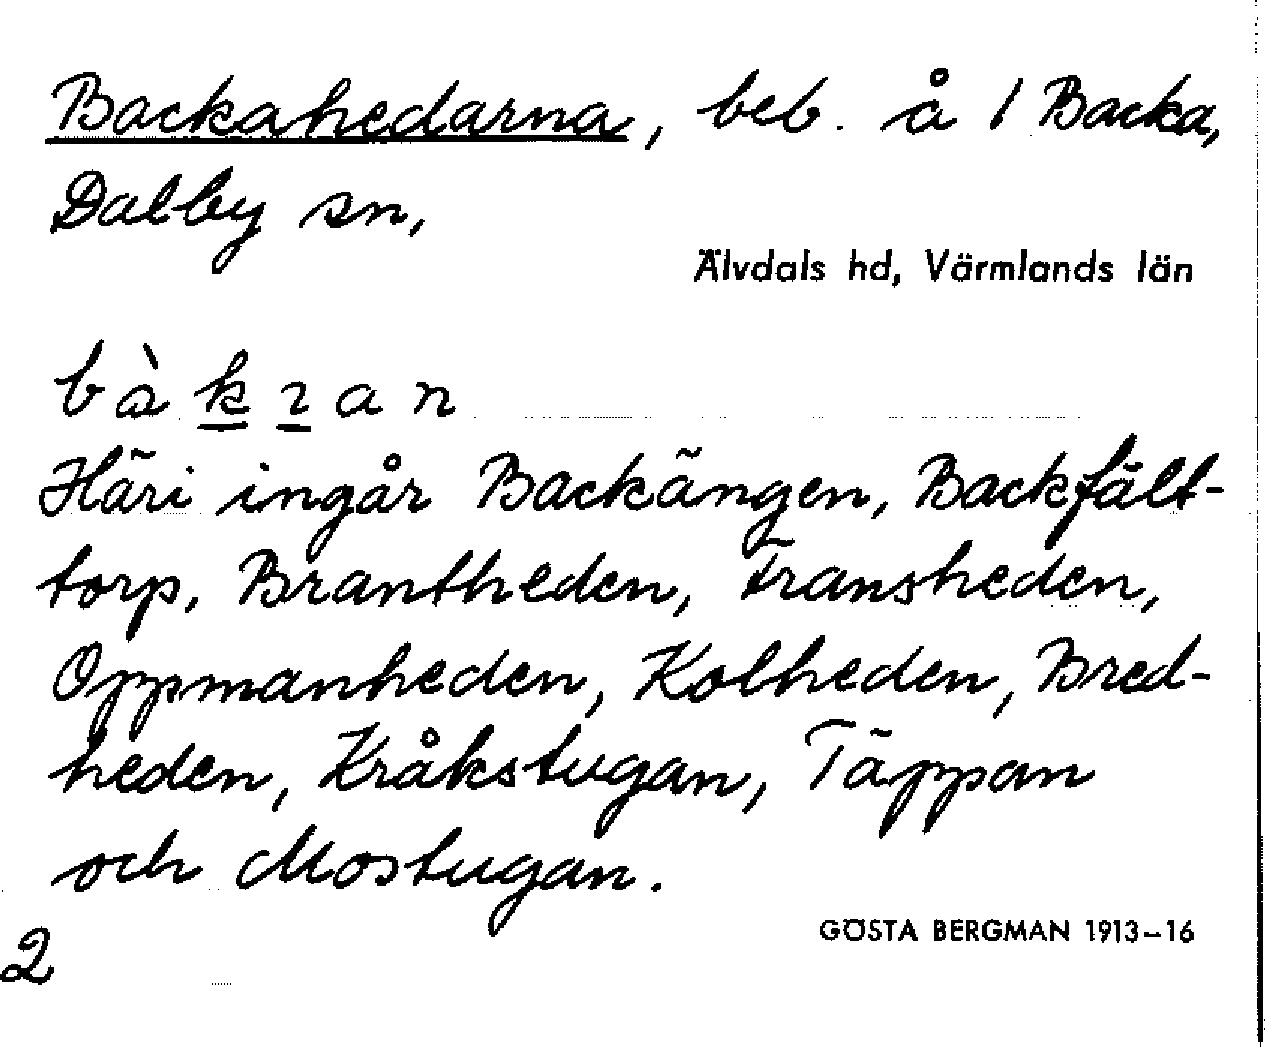 Backahedarna, beb. å 1 Backa,
Dalby sn,
Älvdals hd, Värmlands län
bàkɿan
Häri ingår Backängen, Backfält-
torp, Brantheden, Fransheden,
Oppmanheden, Kolheden, Bred-
heden, Kråkstugan, Täppan
och Mostugan.
GÖSTA BERGMAN 1913–16
2